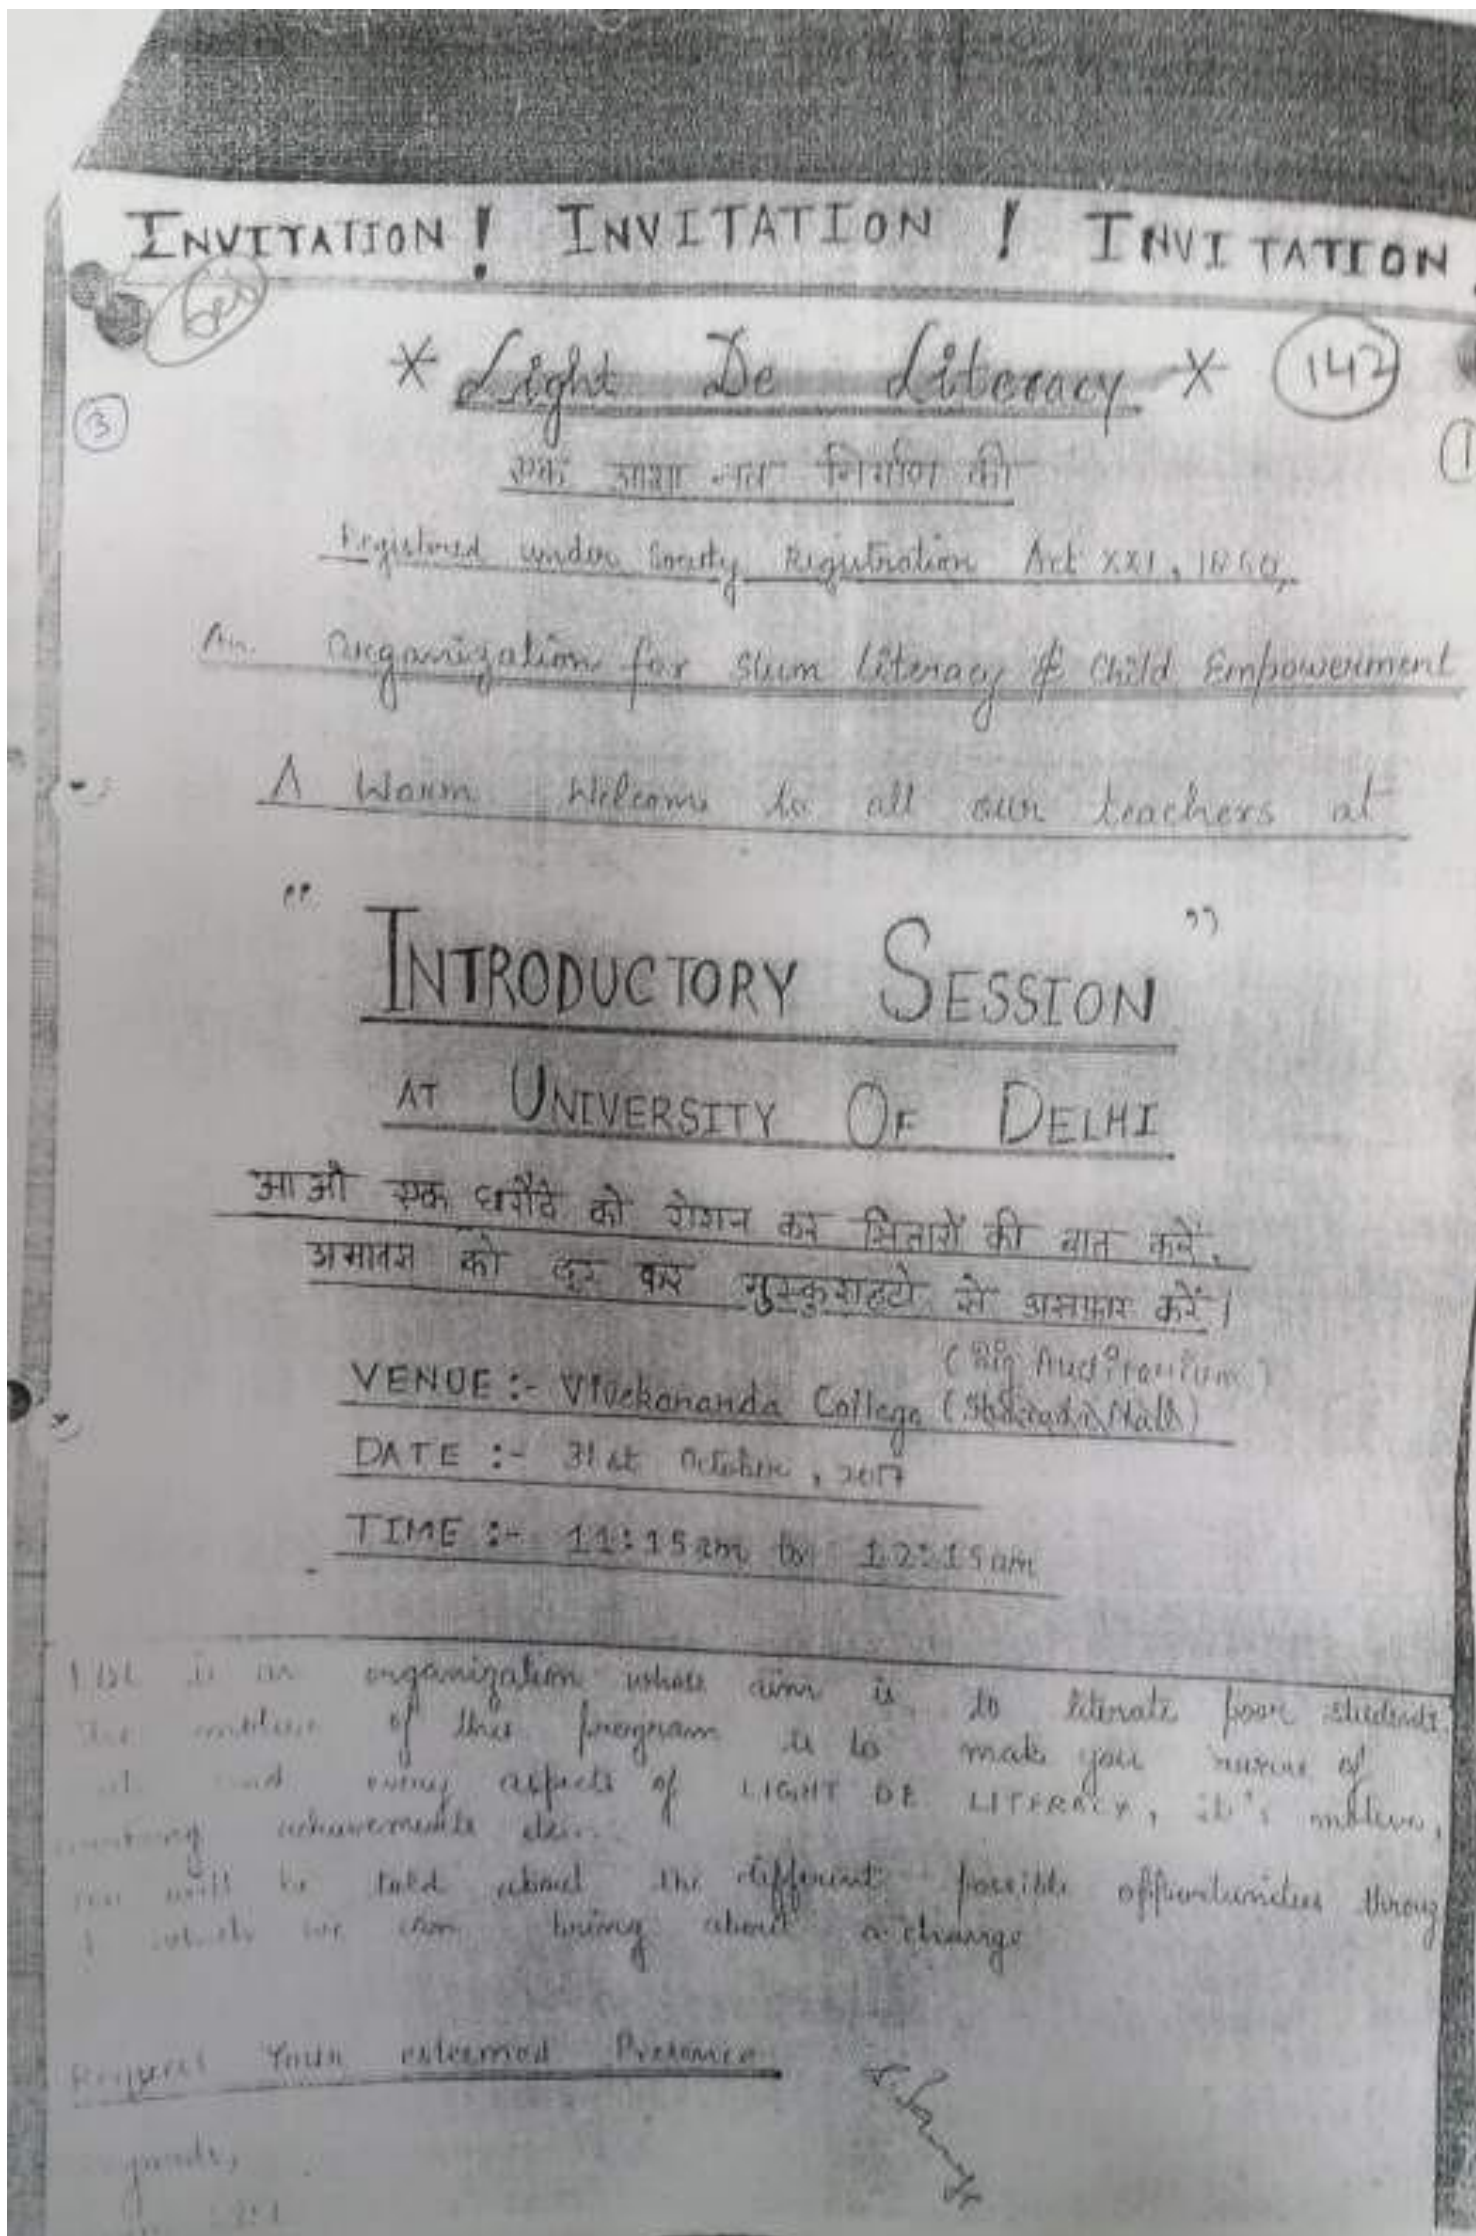 INVITATION! INVITATION! INVITATION
* Light De Literacy *
142
3
एक आशा नव निर्माण की
Registered under Society Registration Act XXI, 1860,
An Organization for Slum Literacy & Child Empowerment
A Warm Welcome to all our teachers at
" INTRODUCTORY SESSION "
AT UNIVERSITY OF DELHI
आओ एक घरौंदे को रोशन कर सितारों की बात करें,
अमावस को दूर कर मुस्कुराहटो से असफार करें।
(Big Auditorium)
VENUE :- Vivekananda College
DATE :- 31st October, 2017
TIME :- 11:15am to 12:15am
is an organization whose aim is to literate poor students.
of this program is to make you aware of
every aspects of LIGHT DE LITERACY, it's motive,
achievements etc.
will be told about the different possible opportunities throug
h which we can bring about a change
Request Your esteemed Presence